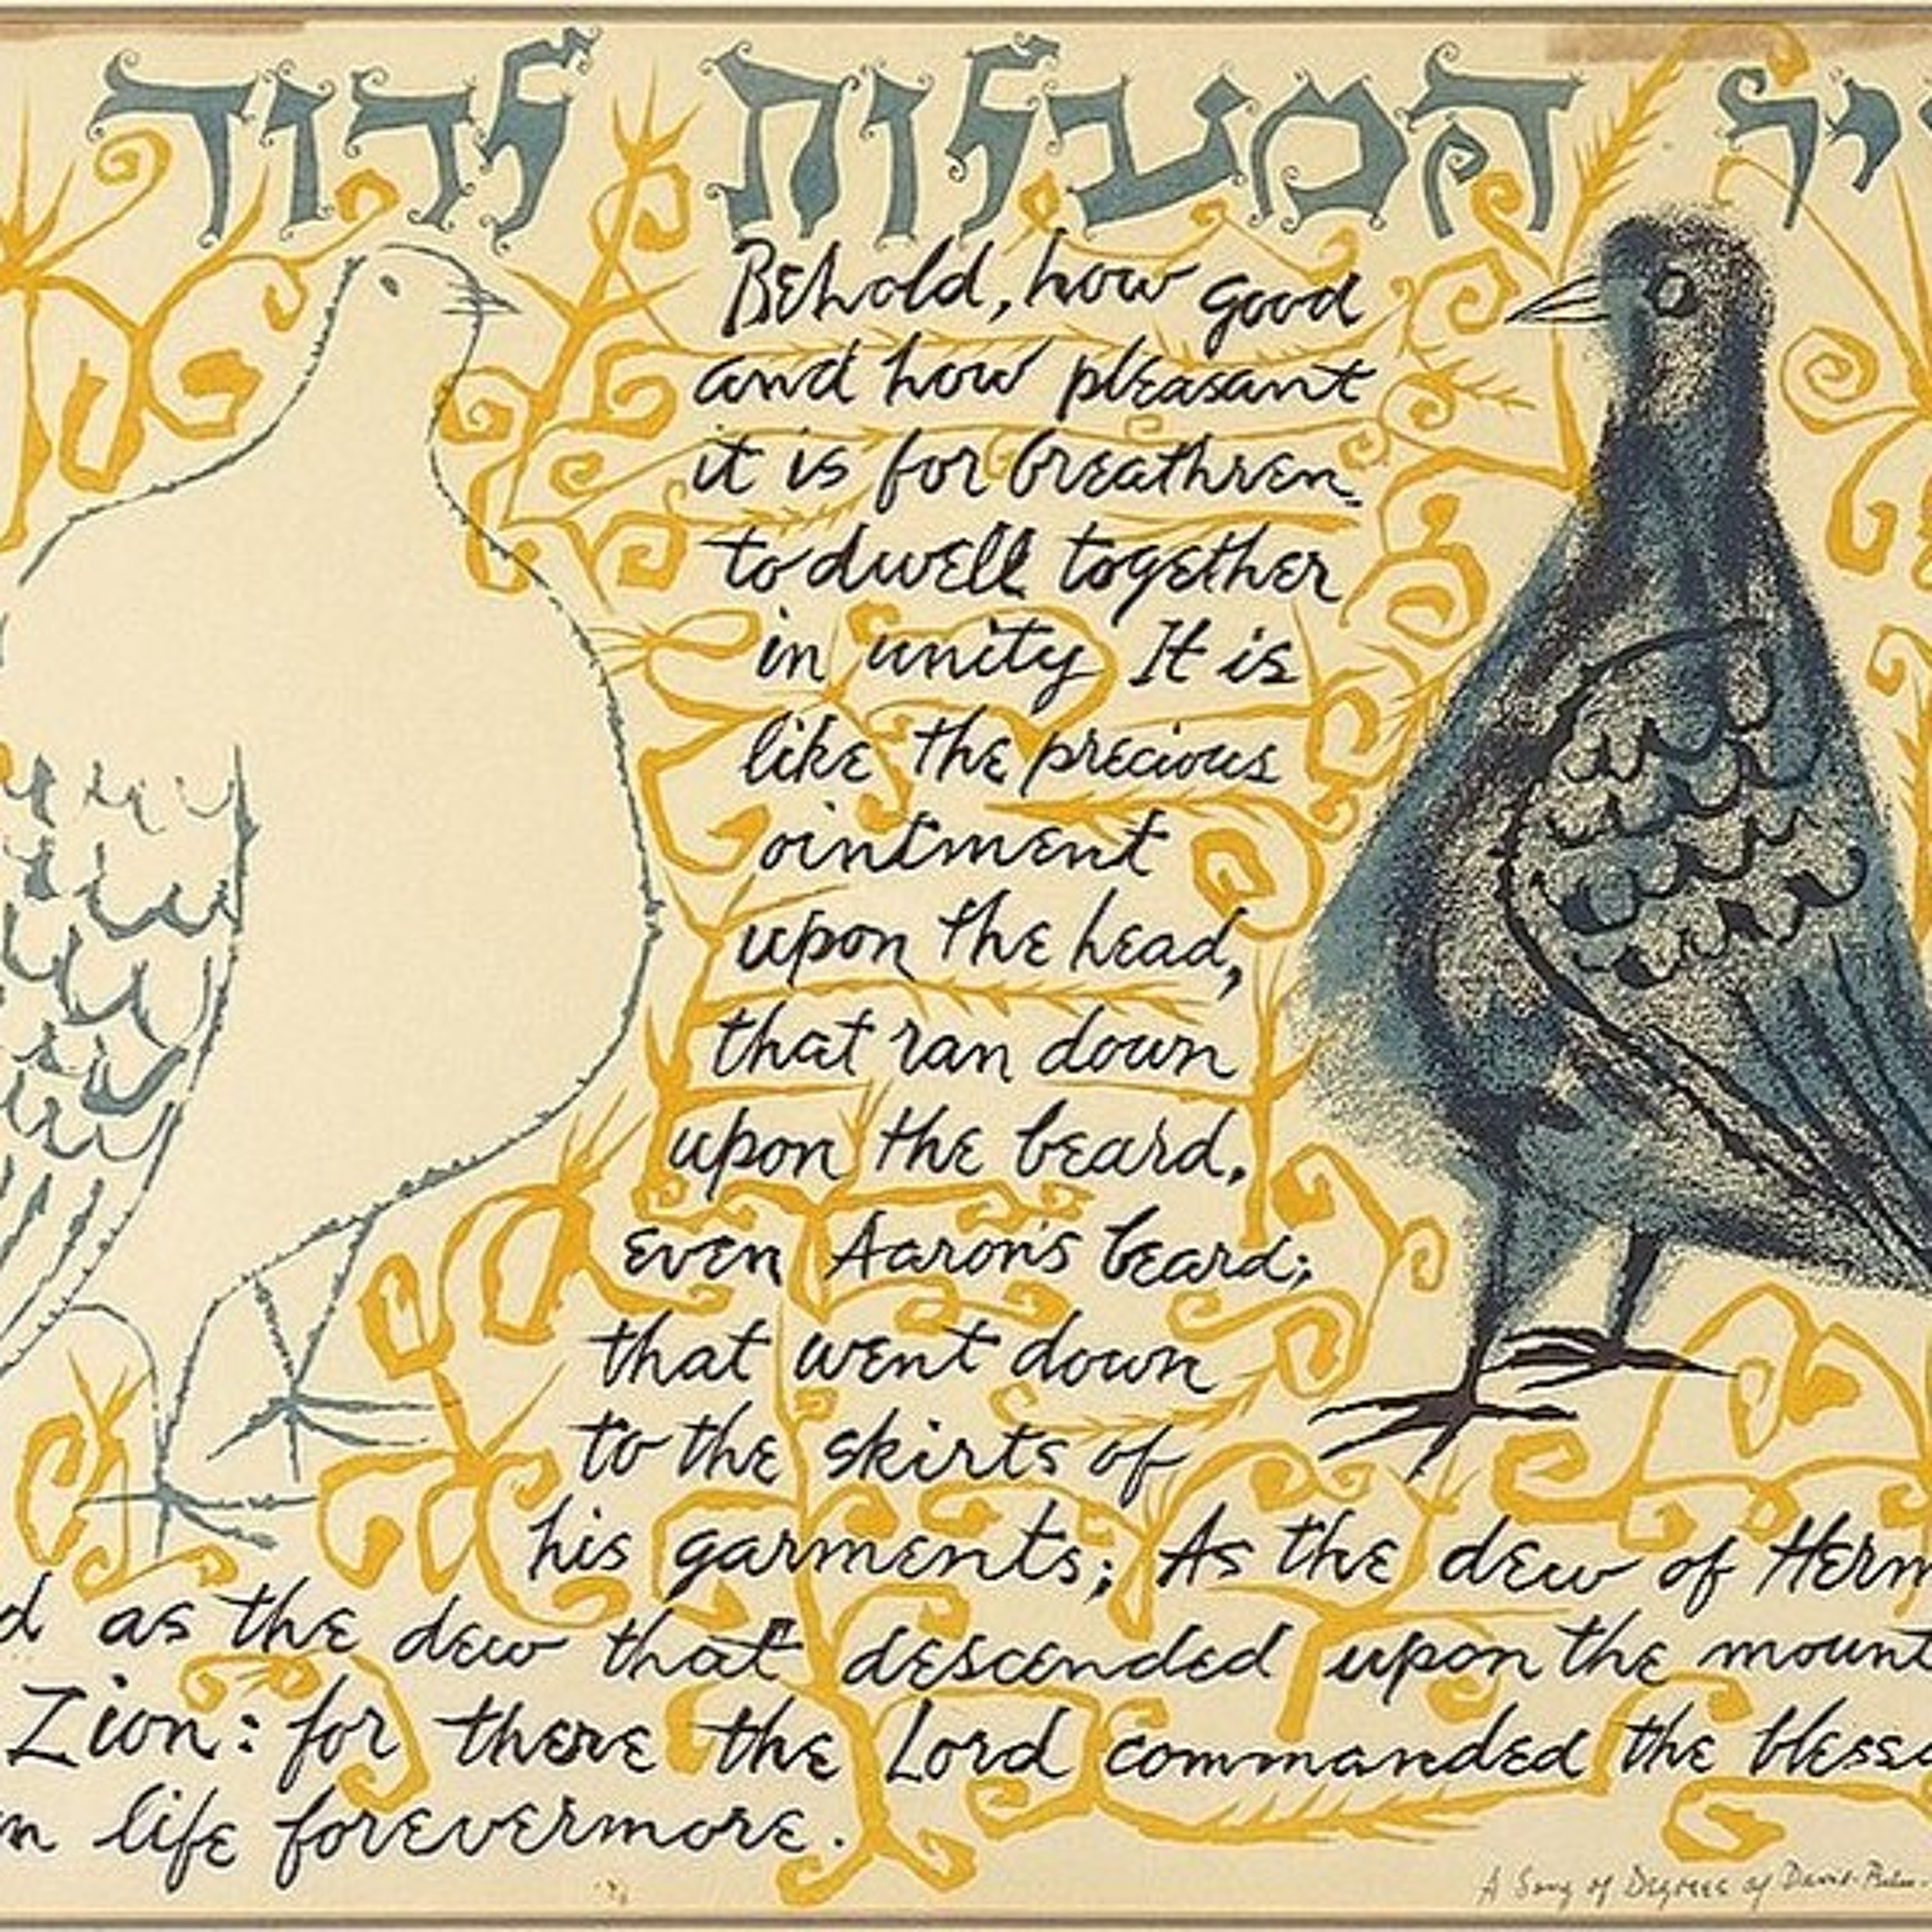 יר המעלות לדוד
Behold, how good
and how pleasant
it is for breathren
to dwell together
in unity It is
like the precious
ointment
upon the head,
that ran down
upon the beard,
even Aaron's beard;
that went down
to the skirts of
his garments; As the dew of Herm
d as the dew that descended upon the mount
Zion: for there the Lord commanded the bless
n life forevermore.
A Song of Degrees of David